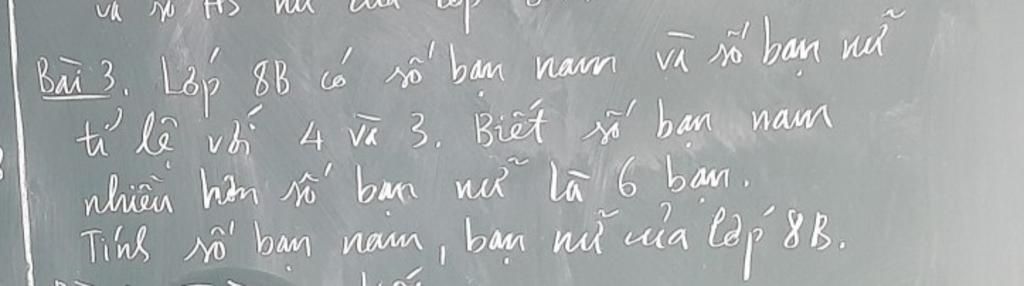 và số HS nữ của lớp 8
Bài 3. Lớp 8B có số bạn nam và số bạn nữ
tỉ lệ với 4 và 3. Biết số bạn nam
nhiều hơn số bạn nữ là 6 bạn.
Tính số bạn nam, bạn nữ của lớp 8B.